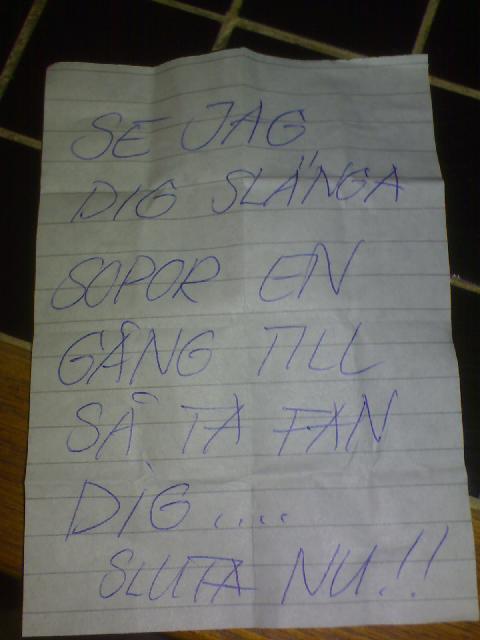 SE JAG
DIG SLÄNGA
SOPOR EN
GÅNG TILL
SÅ TA FAN
DIG....
SLUTA NU!!